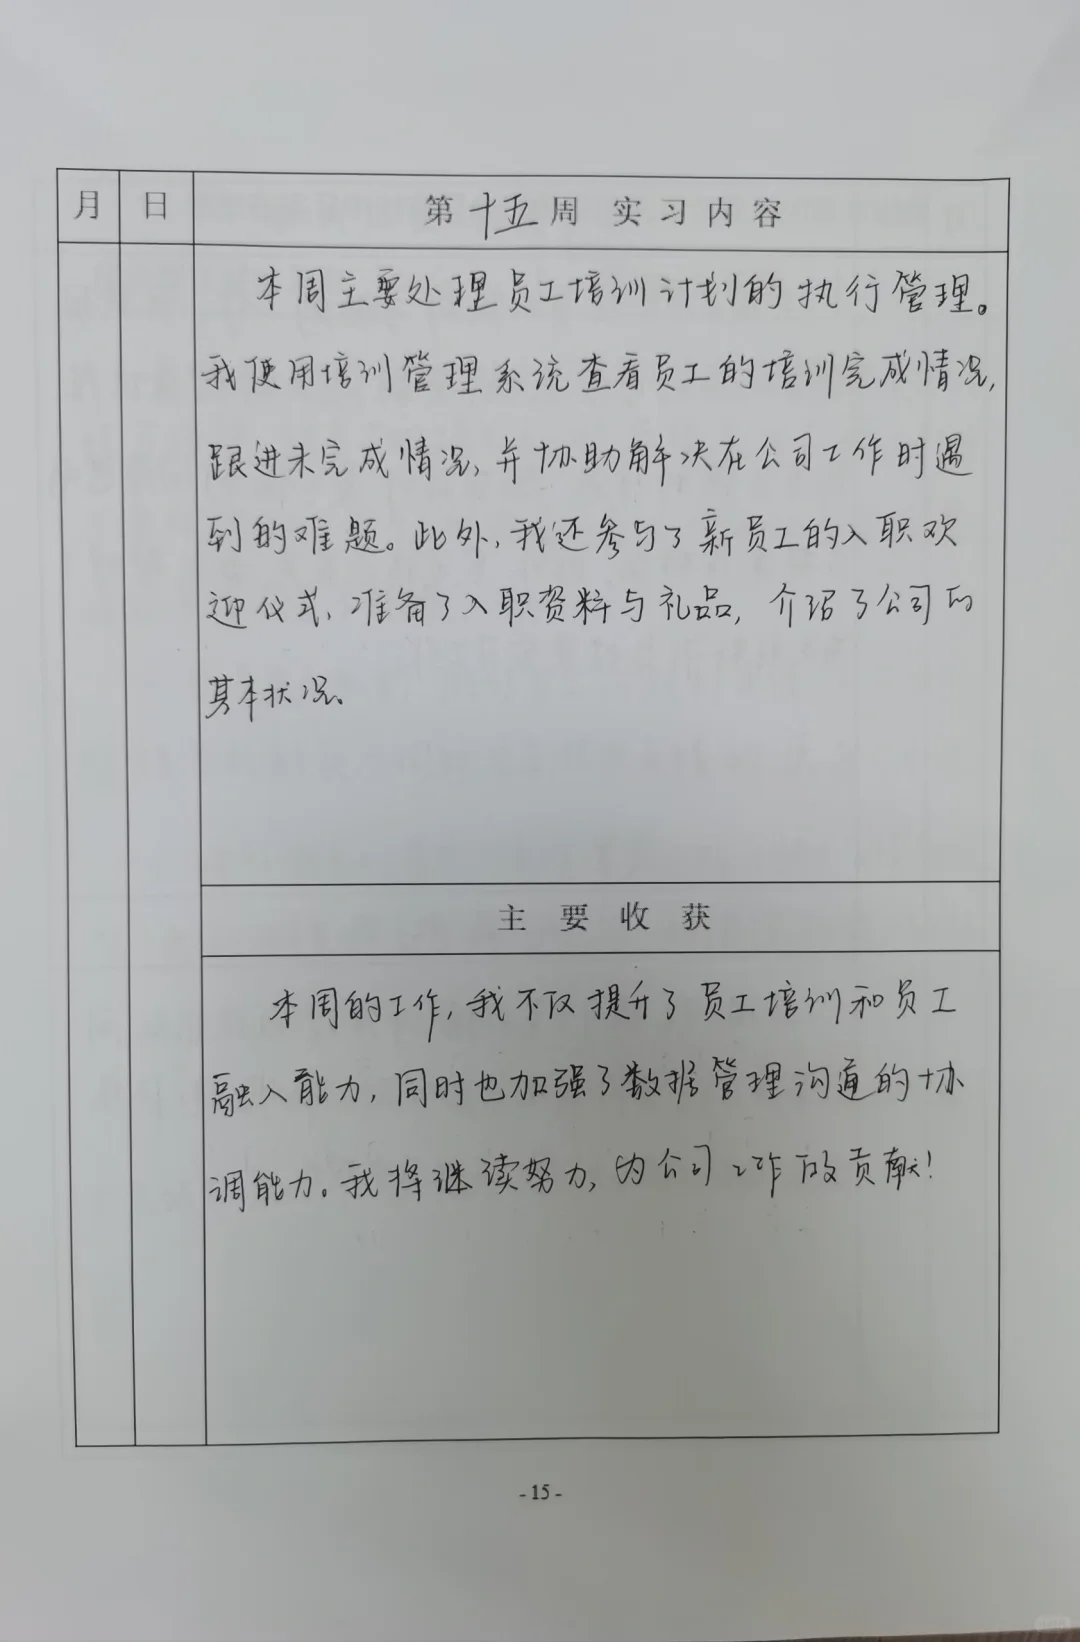 月 日 第十五周 实习内容
本周主要处理员工培训计划的执行管理。
我使用培训管理系统查看员工的培训完成情况,
跟进未完成情况、并协助解决在公司工作时遇
到的难题。此外,我还参与了新员工的入职欢
迎仪式、准备了入职资料与礼品,介绍了公司的
基本状况。
主要收获
本周的工作,我不仅提升了员工培训和员工
融入能力,同时也加强了数据管理沟通的协
调能力。我将继续努力,为公司工作做贡献!
- 15 -